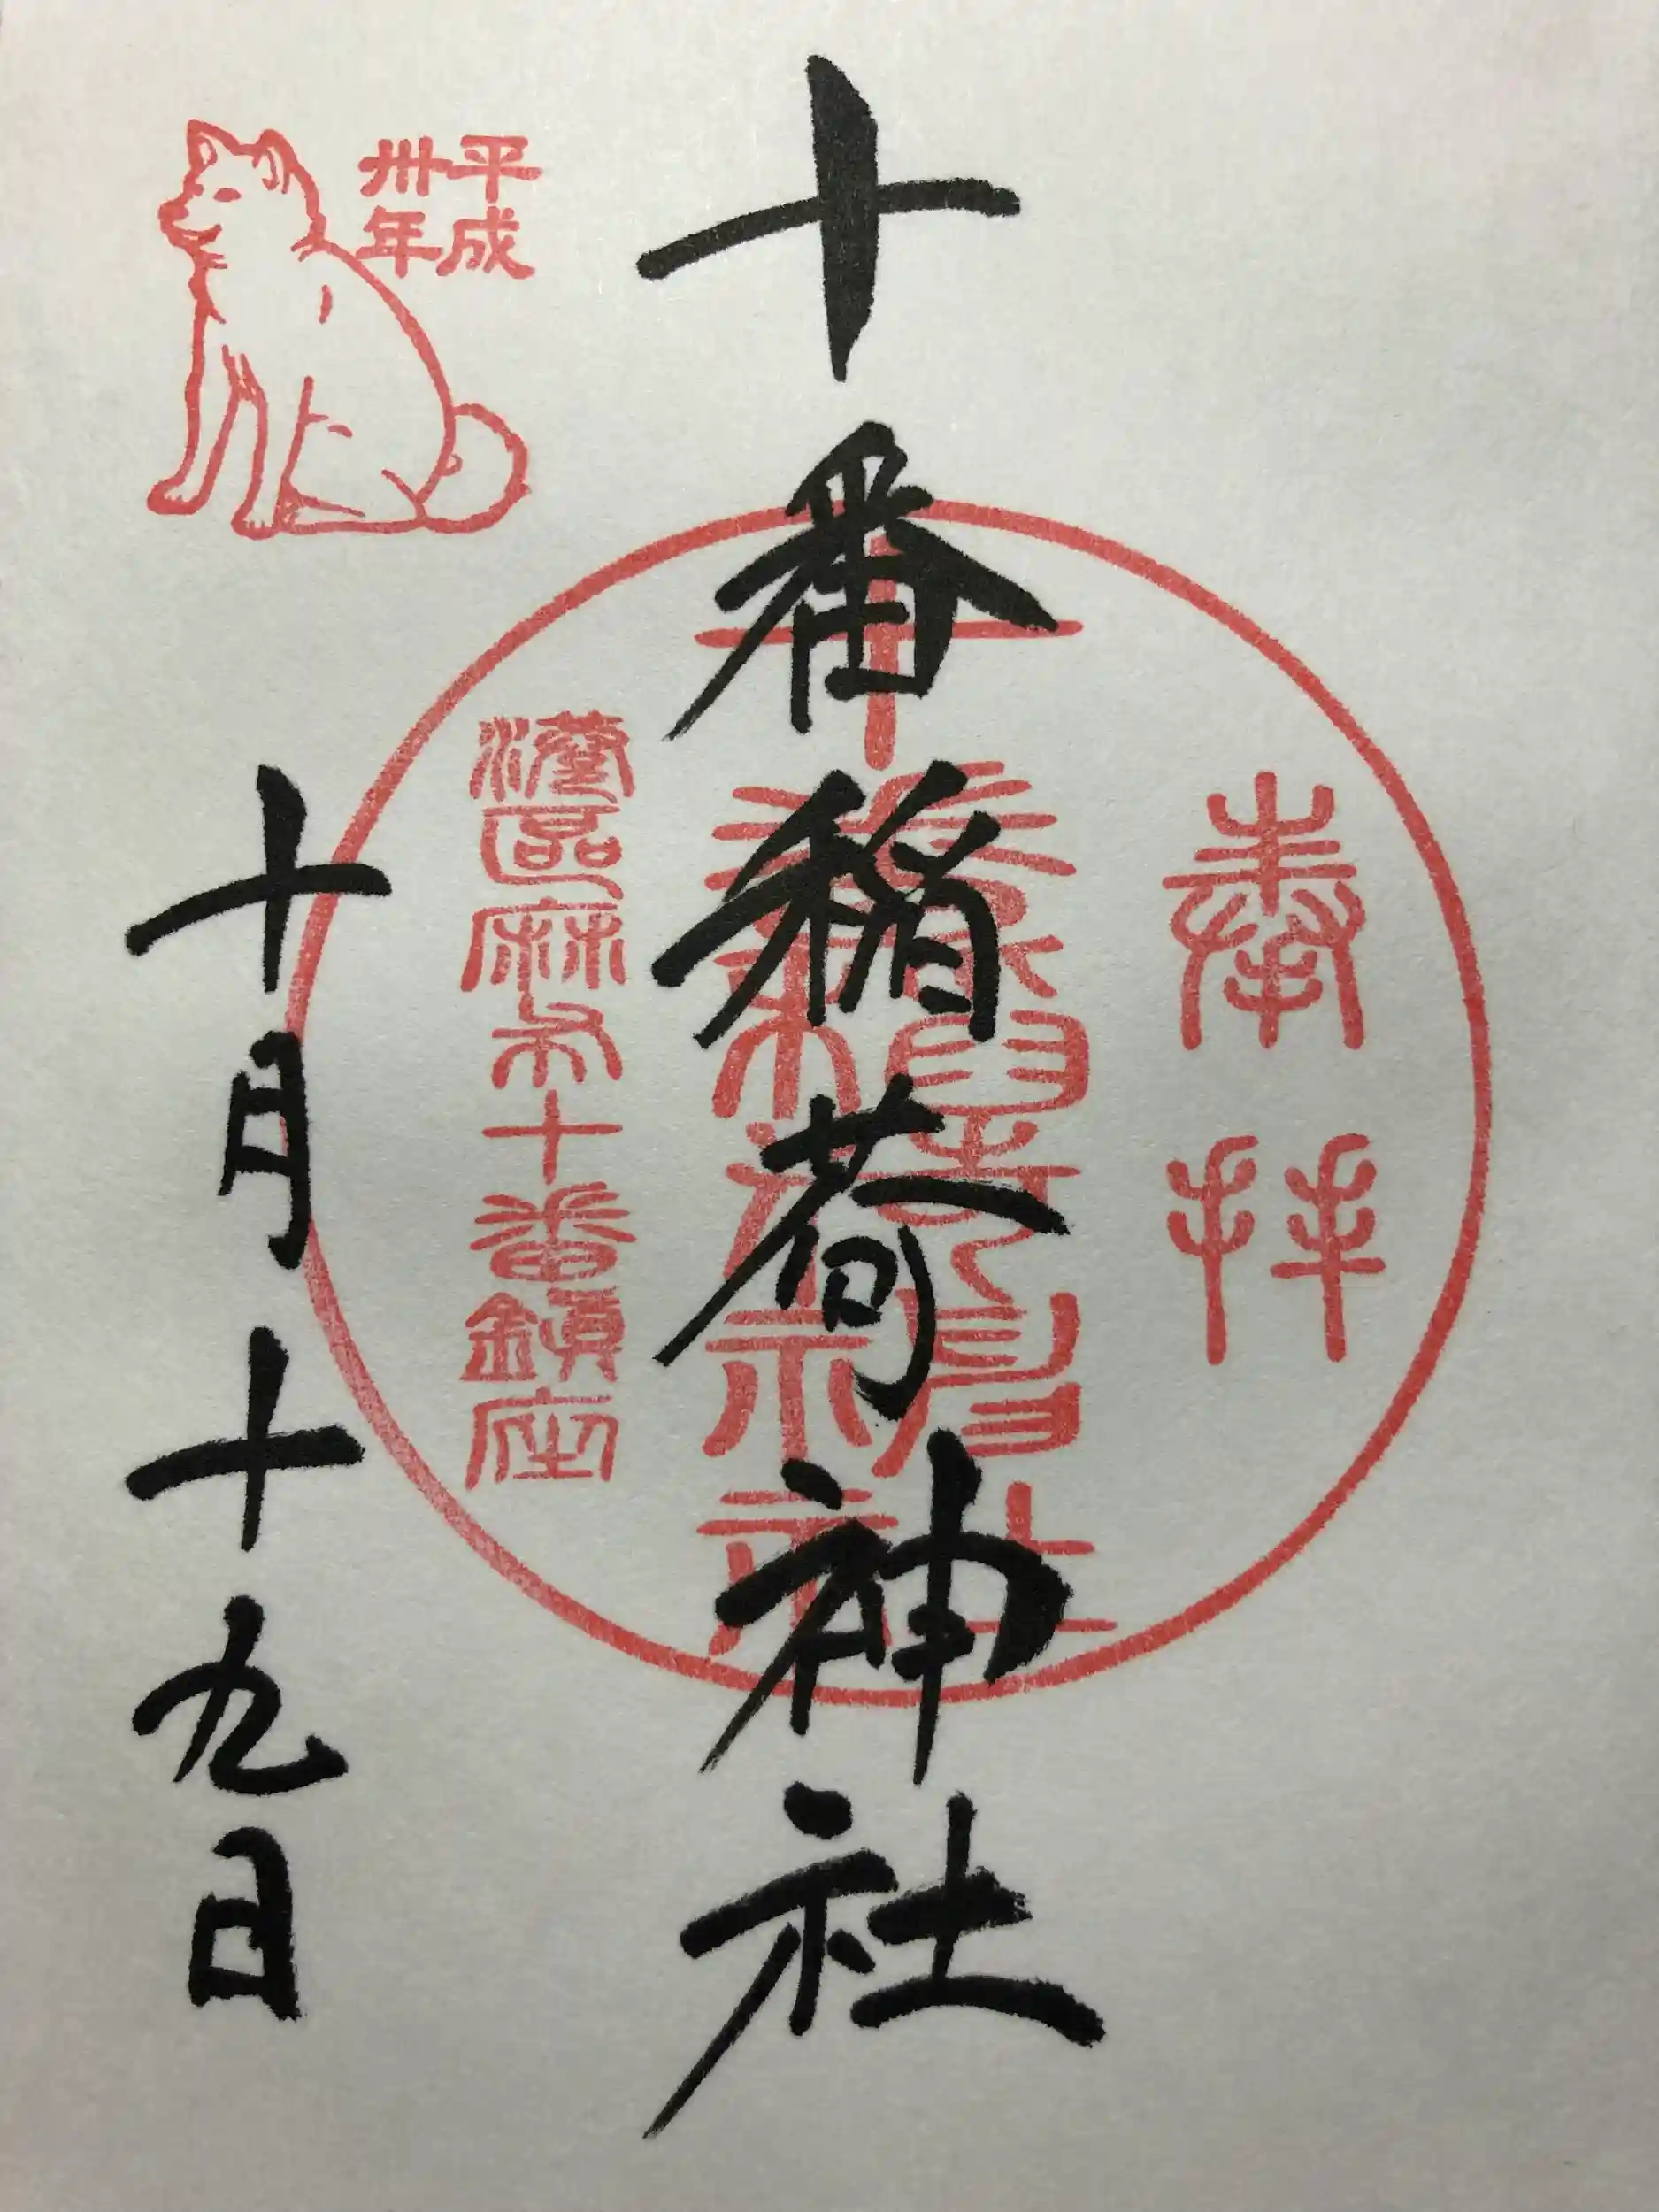 奉拝
十番稲荷神社
十番稲荷神社
港区麻布十番鎮座
平成
卅年
十月十九日